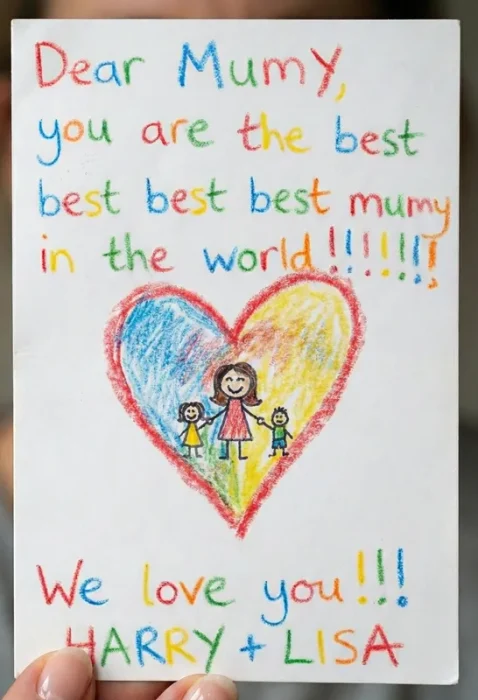 Dear Mumy,
you are the best
best best best mumy
in the world!!!!!!!
We love you!!!
HARRY + LISA